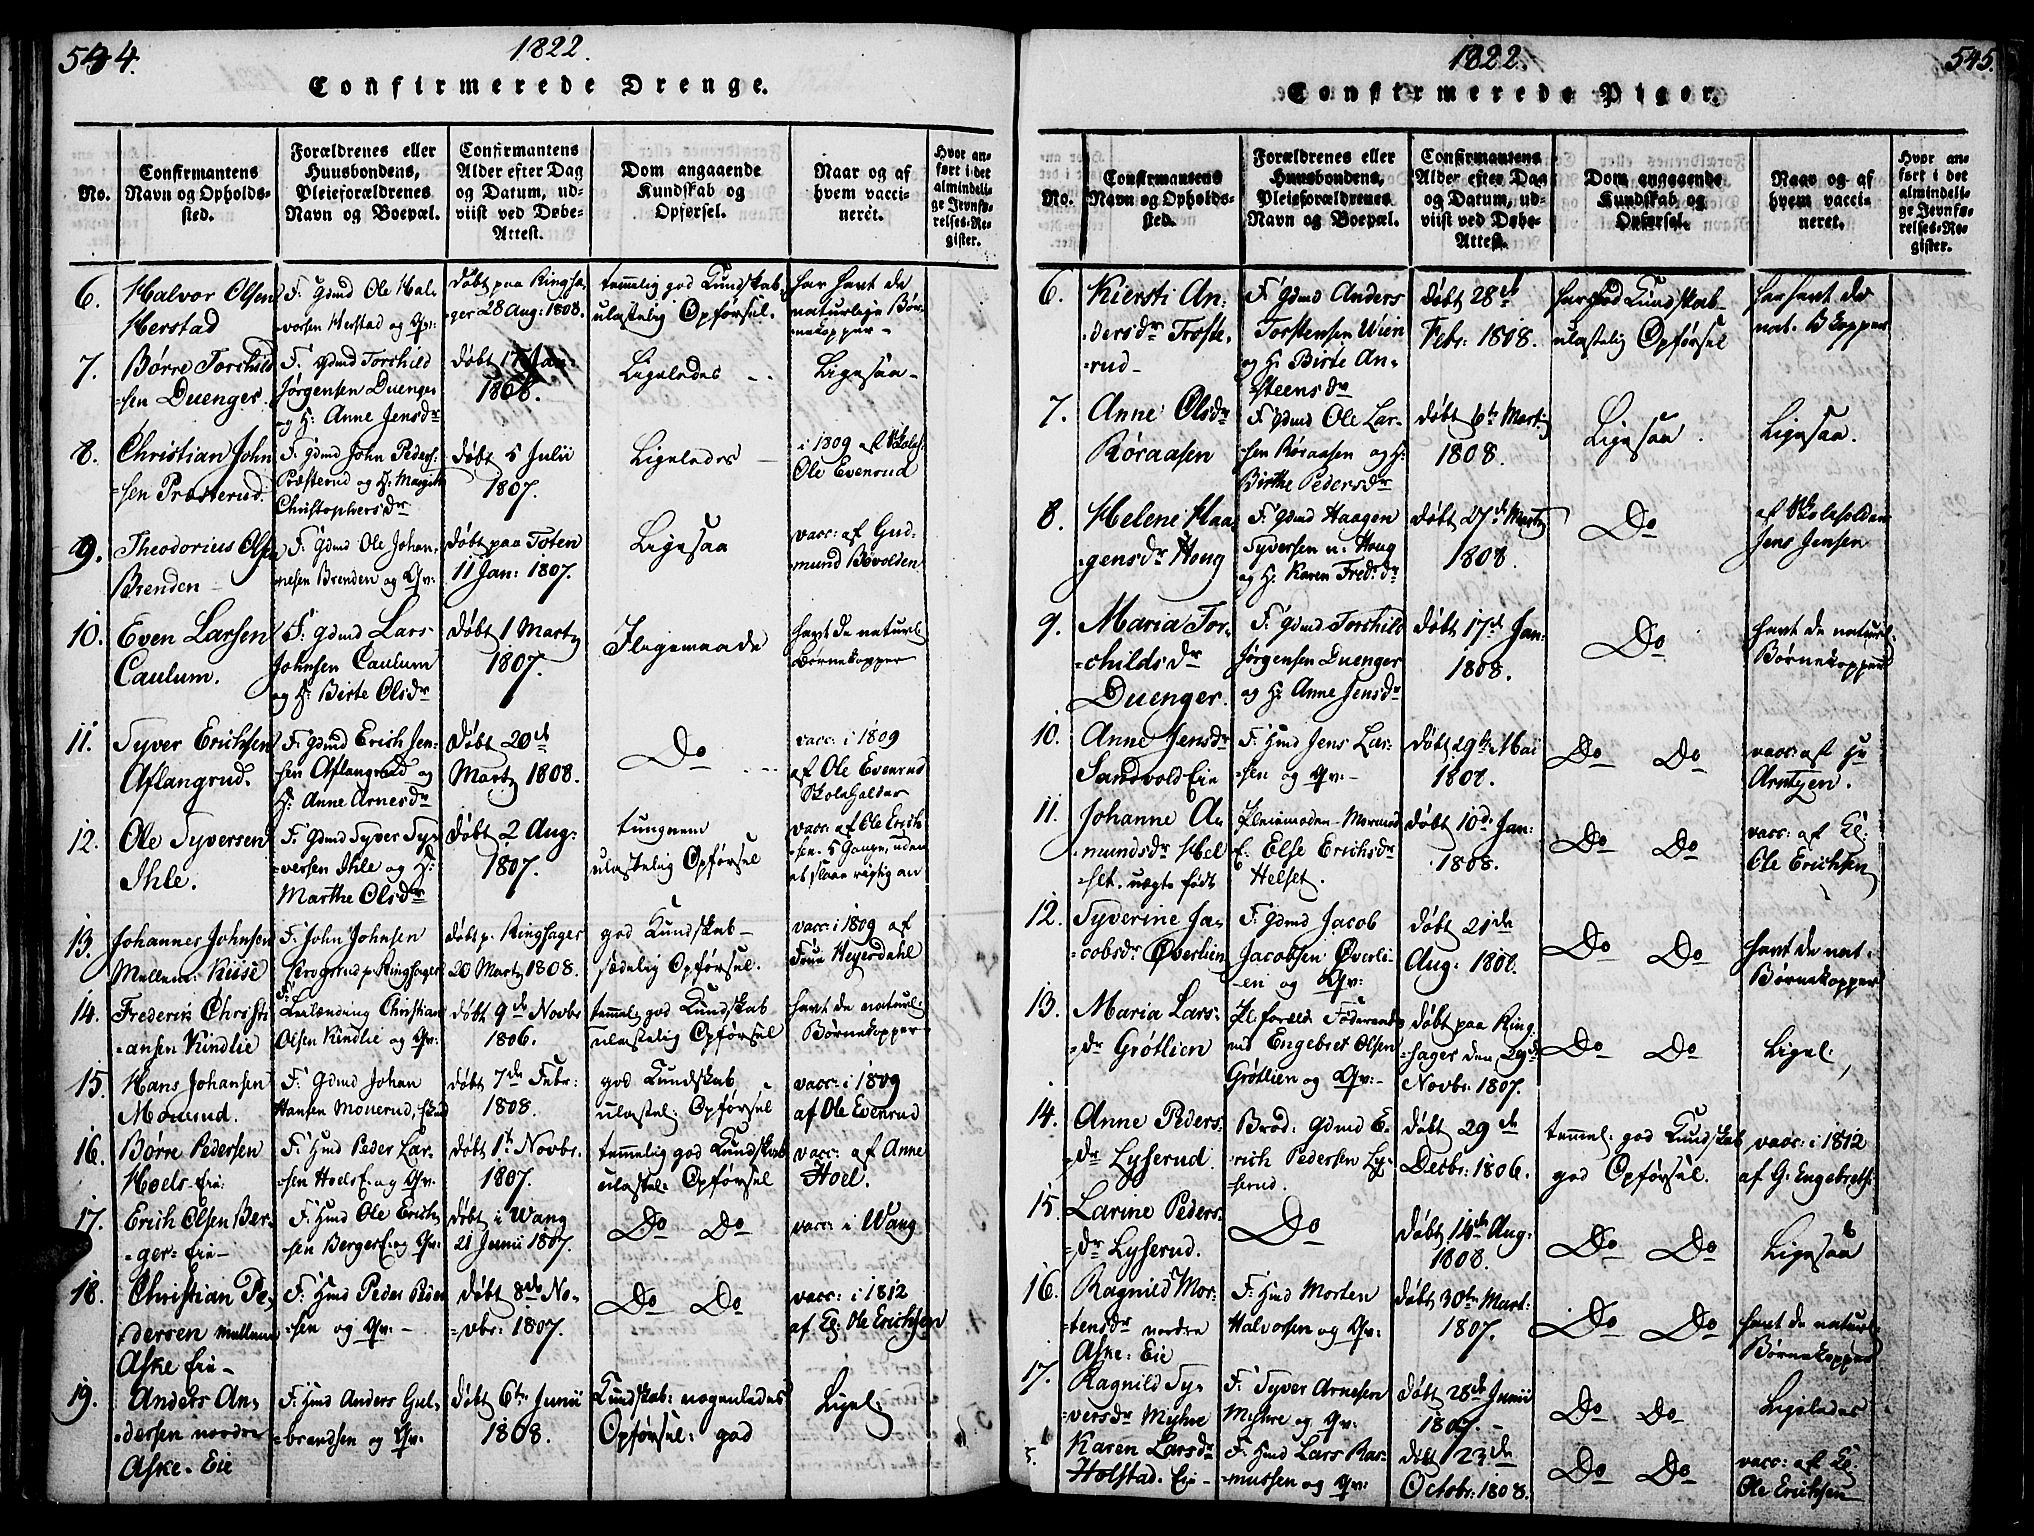 544.
1822.
Confirmerede Drenge.
No.
Confirmantens Navn og Opholdssted.
Forældrenes eller Huusbondens, Pleieforældrenes Navn og Boepæl.
Confirmantens Alder efter Dag og Datum, udviist ved Døbe-Attest.
Dom angaaende Kundskab og Opførsel.
Naar og af hvem vaccineret.
Hvor anført i det almindelige Jevnførelses-Register.
6. Halvor Olsen Herstad
F: Gdmd Ole Halvorsen Herstad og Qv:
døbt paa Ringsager 28 Aug: 1808.
temmelig god Kundskab, ulastelig Opførsel.
har havt de naturlige Børnekopper
7. Børre Torchildsen Duenger.
F. Gdmd Torchild Jørgensen Duenger og H: Anne Jensdr
døbt 17 Jan: 1808.
Ligeledes
Ligesaa
8. Christian Johnsen Præsterud.
F. Gdmd John Peders: Præsterud og H: Margith Christophersdr
døbt 5 Julii 1807.
Ligeledes
i 1809 af Skoleh. Ole Evenrud
9. Theodorius Olsen Brenden
F: Gdmd Ole Johannesen Brenden og Qv:
døbt paa Toten 11 Jan: 1807.
Ligesaa
vacc: af Gudmund Bøvolden
10. Even Larsen Caulum.
F: Gdmd Lars Johnsen Caulum og H: Birte Olsdr
døbt 1 Marty 1807.
Iligemaade
havt de naturl: Børnekopper
11. Syver Erichsen Aflangrud.
F: Gdmd Erich Jensen Aflangrud og H: Anne Arnesdr
døbt 20de Marty 1808.
Do
vacc: i 1809 af Ole Evenrud Skoleholder
12. Ole Syversen Ihle.
F: Gdmd Syver Syversen Ihle og H: Marthe Olsdr
døbt 2 Aug: 1807.
tungnem ulastelig Opførsel
vacc: af Ole Erichsen. 5 Gange, uden at slaae rigtig an
13. Johannes Johnsen Mellem: Kiise
F: John Johnsen Krogsrud p. Ringsager
døbt p. Ringsager 20 Marty 1808.
god Kundskab sædelig Opførsel.
vacc: i 1809 af Frue Heyerdahl
14. Frederik Christiansen Kindlie
F: Leilænding Christian Olsen Kindlie og Qv:
døbt 9de Novbr 1806.
temmel: god Kundskab ulastelig Opførsel
havt de naturl: Børnekopper
15. Hans Johansen Mouerud.
F: Gdmd Johan Hansen Mouerud,
døbt 7de Febr: 1808.
god Kundskab ulastel: Opførsel
vacc: i 1809 af Ole Evenrud
16. Børre Pedersen Hoels-Eie:
F: Hmd Peder Larsen Hoels E. og Qv:
døbt 1te Novbr. 1807.
temmelig god Kundskab ulastel: Opførsel
vacc: af Anne Hoel.
17. Erich Olsen Berger-Eie
F: Hmd Ole Erichsen Berger E. og Qv:
døbt i Wang 21 Junii 1807.
Do Do
vacc: i Wang
18. Christian Pedersen mellem Aske Eie
F: Hmd Peder Pedersen og Qv:
døbt 8de Novbr: 1807.
Do Do
vacc: i 1812 af Eg: Ole Erichsen
19. Anders Andersen nordre Aske-Eie
F: Hmd Anders Gulbrandsen og Qv:
døbt 6te Junii 1808.
Kundskab: nogenledes Opførsel: god
Ligel:
1822.
545.
Confirmerede Piger.
No.
Confirmantens Navn og Opholdssted.
Forældrenes eller Huusbondens, Pleieforældrenes Navn og Boepæl.
Confirmantens Alder efter Dag og Datum, udviist ved Døbe-Attest.
Dom angaaende Kundskab og Opførsel.
Naar og af hvem vaccineret.
Hvor anført i det almindelige Jevnførelses-Register.
6. Kiersti Andersdr Trosterud
F: Gdmd Anders Torstensen Wien og H: Birte Ansteensdr
døbt 28de Febr: 1808.
har god Kundskab ulastelig Opførsel
har havt de nat. Bkopper
7. Anne Olsdr Røraasen
F: Gdmd Ole Larsen Røraasen og H: Birthe Pedersdr
døbt 6te Marty 1808.
Ligesaa.
Ligesaa.
8. Helene Haagensdr Houg
F: Gdmd Haagen Syversen n: Houg og H: Karen Fred:dr
døbt 27de Marty 1808.
Do
af Skoleholder Jens Jensen
9. Maria Torchildsdr Duenger.
F: Gdmd Torchild Jørgensen Duenger og H: Anne Jensdr
døbt 17de Jan: 1808.
Do
havt de naturl. Børnekopper
10. Anne Jensdr Sandvold Eie
F: Hmd Jens Larsen og Qv:
døbt 29de Mai
Do Do
vacc: af Hr Arntzen.
11. Johanne Amundsdr Helset. uægte født
Pleiemoder Mormoder Else Erichsdr Helset.
døbt 10de Jan: 1808.
Do Do
vacc: af Eg: Ole Erichsen
12. Syverine Jacobsdr Øverlien
F: Gdmd Jacob Jacobsen Øverlien og Qv:
døbt 21de Aug:
Do Do
havt de nat: Børnekopper
13. Maria Larsdr Grøtlien
Pl. foræld: Føderaadsmd Engebret Olsen Grøtlien og Qv:
døbt paa Ringsager den 29de Novbr: 1807.
Do Do
Ligel:
14. Anne Pedersdr Lyserud.
Brod: Gdmd Erich Pedersen Lyserud.
døbt 29de Decbr: 1806.
temmel: god Kundskab god Opførsel.
vacc: i 1812 af G. Engebreths:
15. Larine Pedersdr Lyserud.
Do
døbt 14de Aug: 1808.
Do Do
Ligesaa
16. Ragnild Mortensdr nordre Aske: Eie
F: Hmd Morten Halvorsen og Qv:
døbt 30te Mart: 1807.
Do Do
havt de naturl: Børnekopper
17. Ragnild Syversdr Myhre
F: Syver Arnesen Myhre og Qv:
døbt 28de Junii 1807.
Do Do
Ligeledes
Karen Larsdr Holstad. Eie
F: Hmd Lars Rasmussen og Qv:
døbt 23de Octobr: 1808.
Do Do
vacc: af Eg. Ole Erichsen